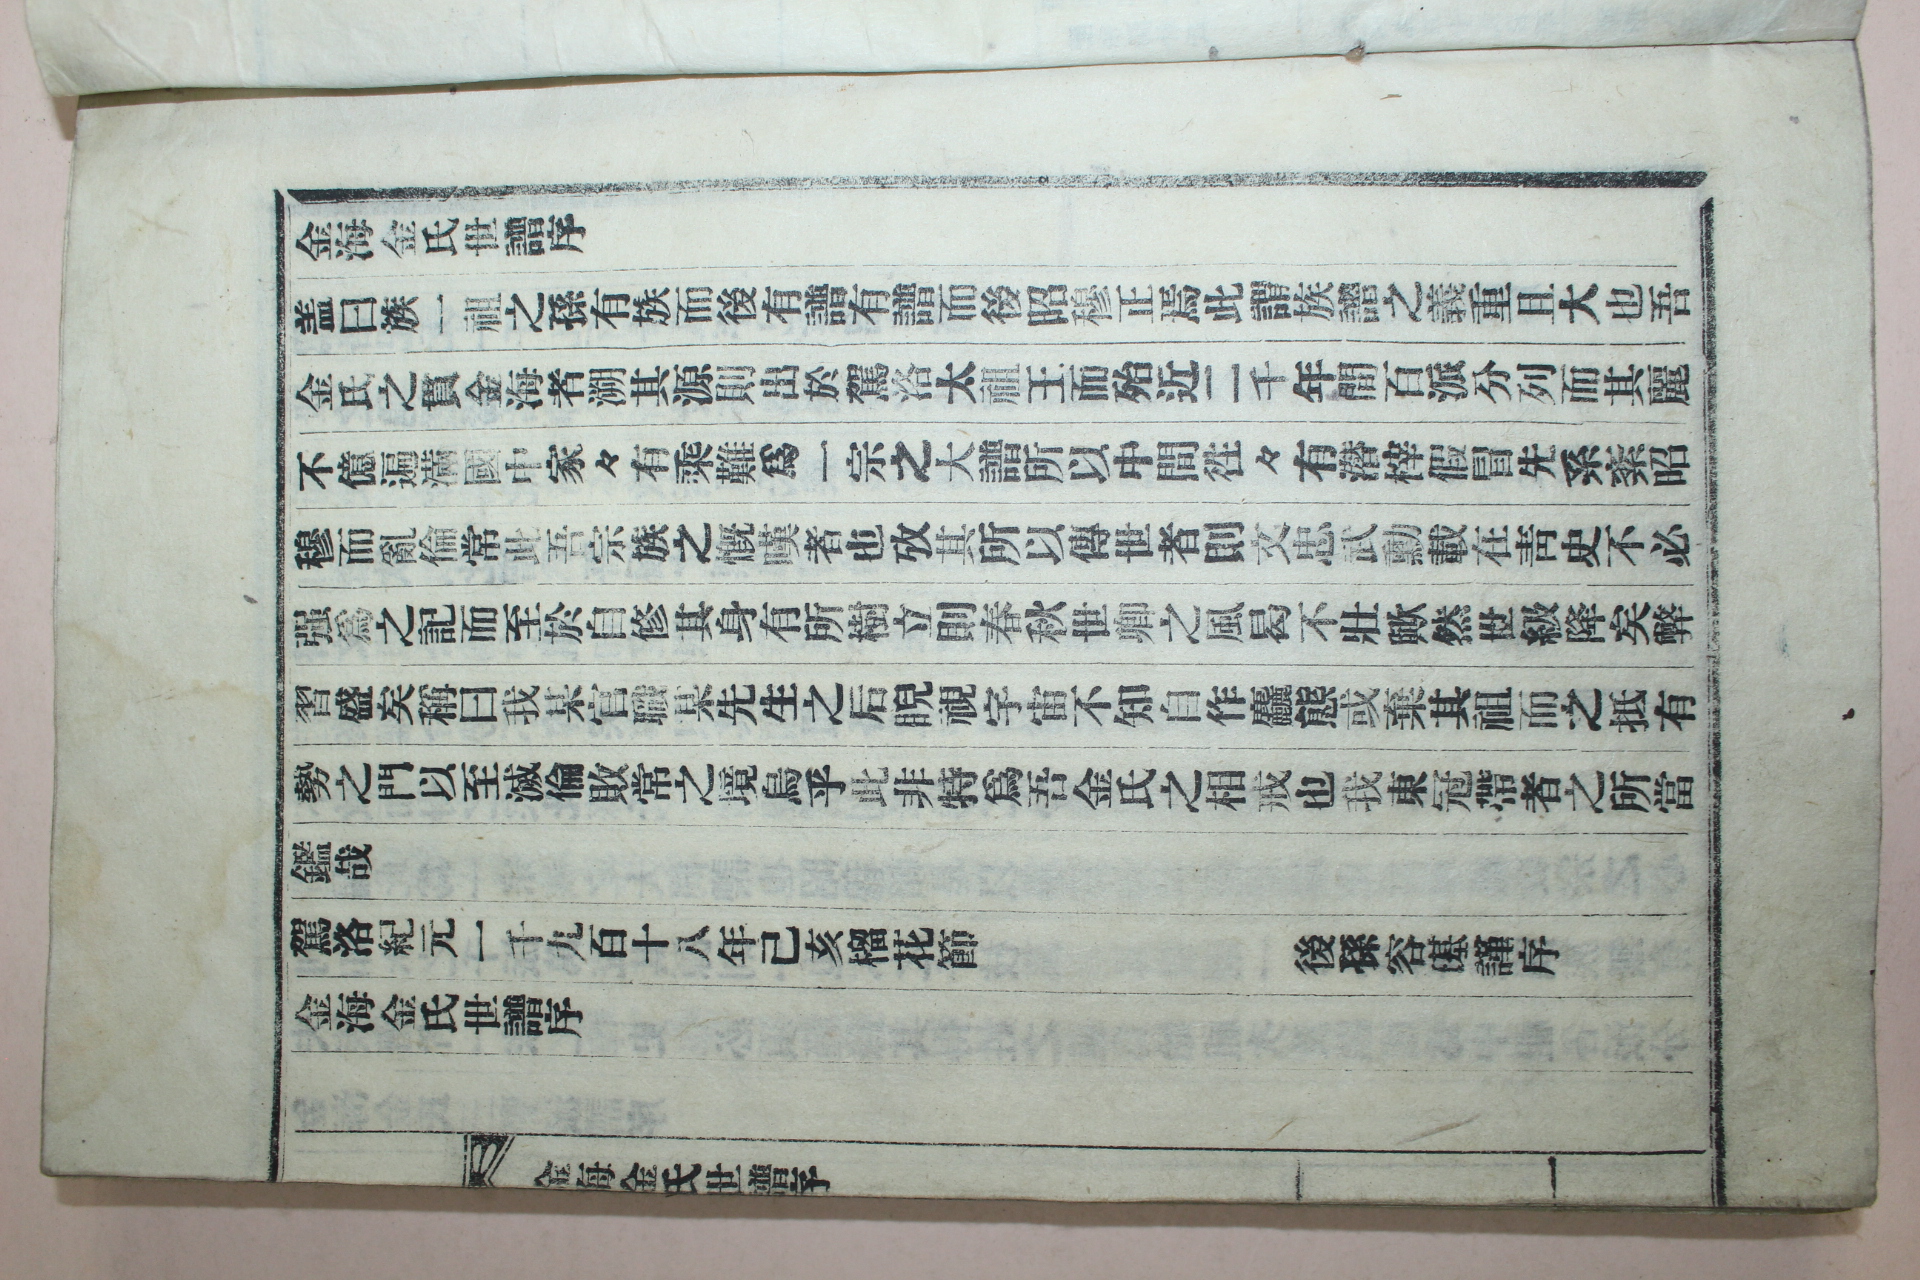 金海金氏世譜序
盖曰族一祖之孫有族而後有譜有譜而後昭穆正焉此謂族譜之義重且大也吾
金氏之貫金海者溯其源則出於駕洛太祖王而殆近二千年間百派分列而其麗
不億遍滿國中家々有乘難爲一宗之大譜所以中間往々有潛梓假冒先系紊昭
穆而亂倫常此吾宗族之慨嘆者也攷其所以傳世者則文忠武勳載在靑史不必
强爲之記而至於自修其身有所樹立則春秋世卿之風曷不壯歟然世級降矣弊
習盛矣稱曰我某官職某先生之后睨視宇宙不知自作麤態或棄其祖而之抵有
勢之門以至滅倫敗常之境烏乎此非特爲吾金氏之相戒也我東冠帶者之所當
鑑哉
駕洛紀元一千九百十八年己亥榴花節 後孫容基謹序
金海金氏世譜序
金海金氏世譜序 一